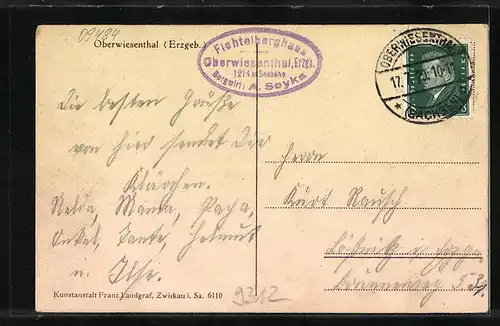 09484
Oberwiesenthal (Erzgeb.)
Fichtelberghaus
Oberwiesenthal, Erzg.
1214 m Seehöhe
Bergwirt: A. Soyka
OBERWIESENTHAL
17. 10-11
(SACHSEN)
Die besten Grüße
von hier sendet Dir
Klärchen.
Nelda, Mama, Papa,
Onkel, Tante, Helmut
u. Ilse.
Herrn
Kurt Rausch
Kunstanstalt Franz Landgraf, Zwickau i. Sa. 6110
9312